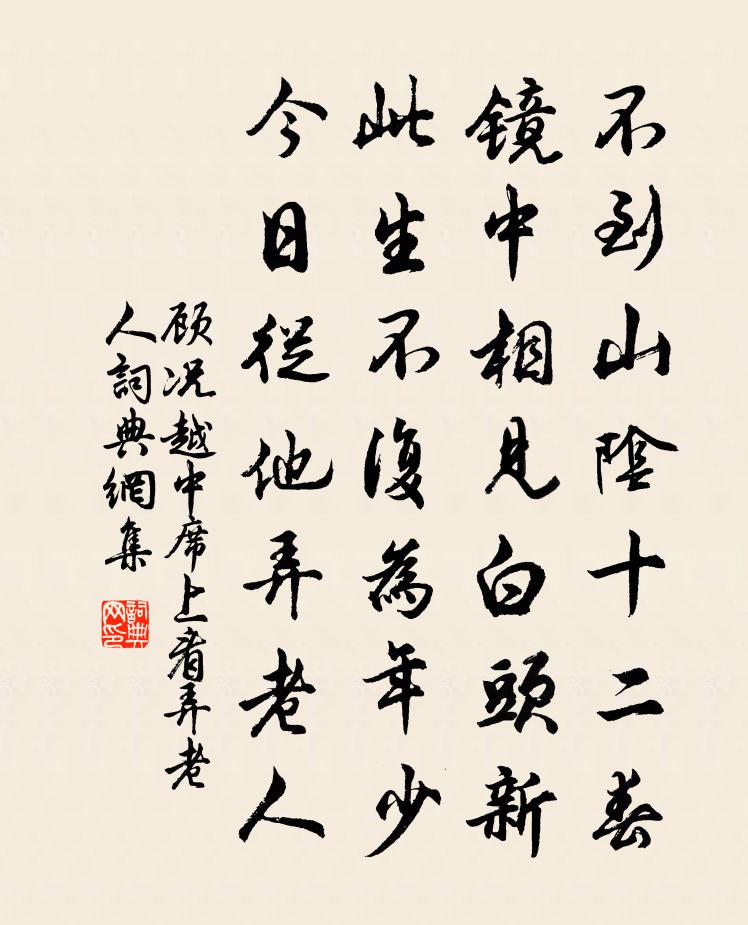 不到山陰十二春
镜中相見白頭新
此生不復為年少
今日從他弄老人
顾况越中席上看弄老
人詞典網集
詞典网印